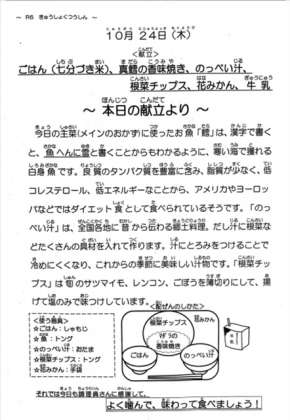 ～ R6 きゅうしょくつうしん ～
10月24日(木)
<献立>
ごはん(七分づき米)、真鱈の香味焼き、のっぺい汁、
根菜チップス、花みかん、牛乳
～ 本日の献立より ～
今日の主菜(メインのおかず)に使ったお魚「鱈」は、漢字で書く
と、魚へんに雪と書くことからもわかるように、寒い海で獲れる
白身魚です。良質のタンパク質を豊富に含み、脂質が少なく、低
コレステロール、低エネルギーなことから、アメリカやヨーロッ
パなどではダイエット食として食べられているそうです。「のっ
ぺい汁」は、全国各地に昔から伝わる郷土料理。だし汁に根菜な
どたくさんの具材を入れて作ります。汁にとろみをつけることで
冷めにくくなり、これからの季節に美味しい汁物です。「根菜チッ
プス」は旬のサツマイモ、レンコン、ごぼうを薄切りにして、揚
げて塩のみで味つけしています。
<配ぜんのしかた>
<使う器具>
☆ごはん：しゃもじ
☆魚：トング
☆のっぺい汁：おたま
☆根菜チップス：トング
☆花みかん：手袋
根菜チップス
花みかん
マダラの
香味焼き
ごはん
のっぺい汁
それでは今日も調理員さんに感謝して、
よく噛んで、味わって食べましょう！